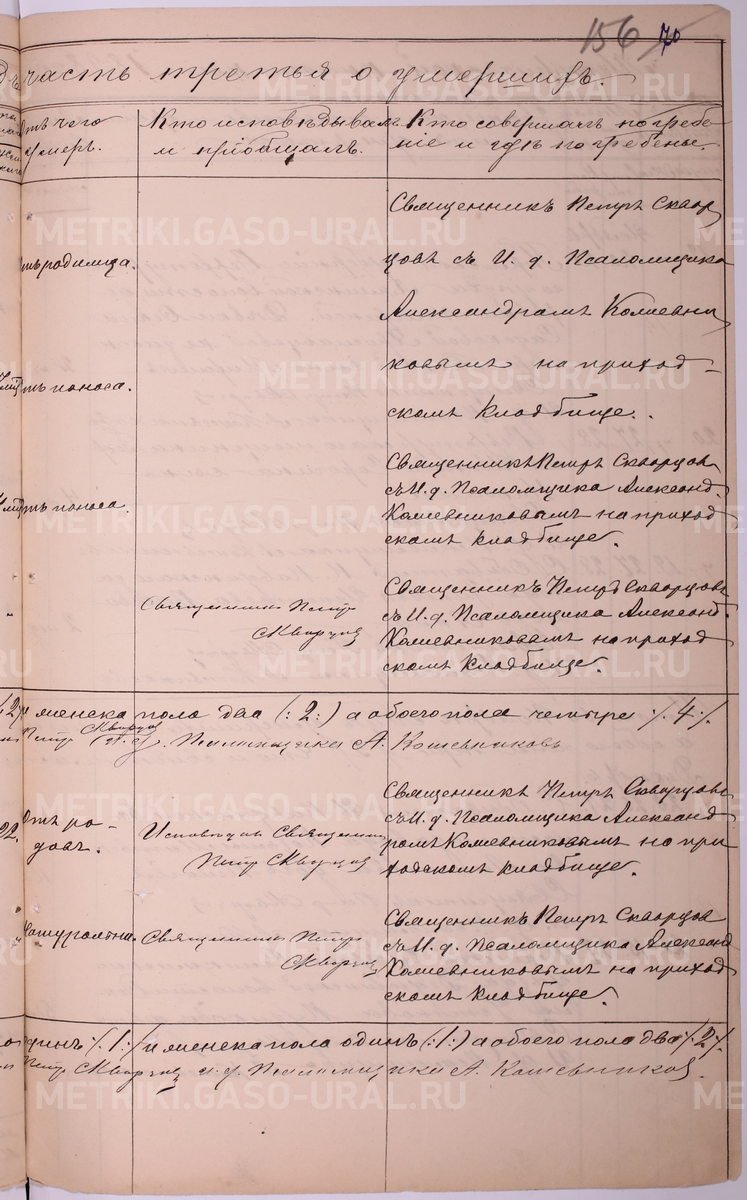 156 70
часть третья о умершихъ.
Отъ чего
умеръ.
Кто исповѣдывалъ
и пріобщалъ.
Кто совершалъ погребе
ніе и гдѣ погребены.
отъ родимца.
Священникъ Петръ Сквор
цовъ съ И. д. Псаломщика
Александромъ Кожевни
ковымъ на приход-
скомъ кладбище.
отъ поноса.
отъ поноса.
Священникъ Петръ Скворцовъ
съ И. д. Псаломщика Александ.
Кожевниковымъ на приход
скомъ кладбище.
Священникъ Петръ
Скворцовъ
Священникъ Петръ Скворцовъ
съ И. д. Псаломщика Александ.
Кожевниковымъ на приход
скомъ кладбище.
и женска пола два (: 2 :) а обоего пола четыре /. 4 /.
Петръ Скворцовъ И. д. Псаломщика А. Кожевниковъ
22.
Отъ ро-
довъ.
Исповѣдалъ Священникъ
Петръ Скворцовъ
Священникъ Петръ Скворцовъ
съ И. д. Псаломщика Александ
ромъ Кожевниковымъ на при
ходскомъ кладбище.
Священникъ Петръ
Скворцовъ
Священникъ Петръ Скворцов
съ И. д. Псаломщика Александ
Кожевниковымъ на приход
скомъ кладбище.
одинъ /. 1 /. и женска пола одинъ (: 1 :) а обоего пола два /. 2 /.
Петръ Скворцовъ и. д. Псаломщика А. Кожевниковъ.
METRIKI.GASO-URAL.RU